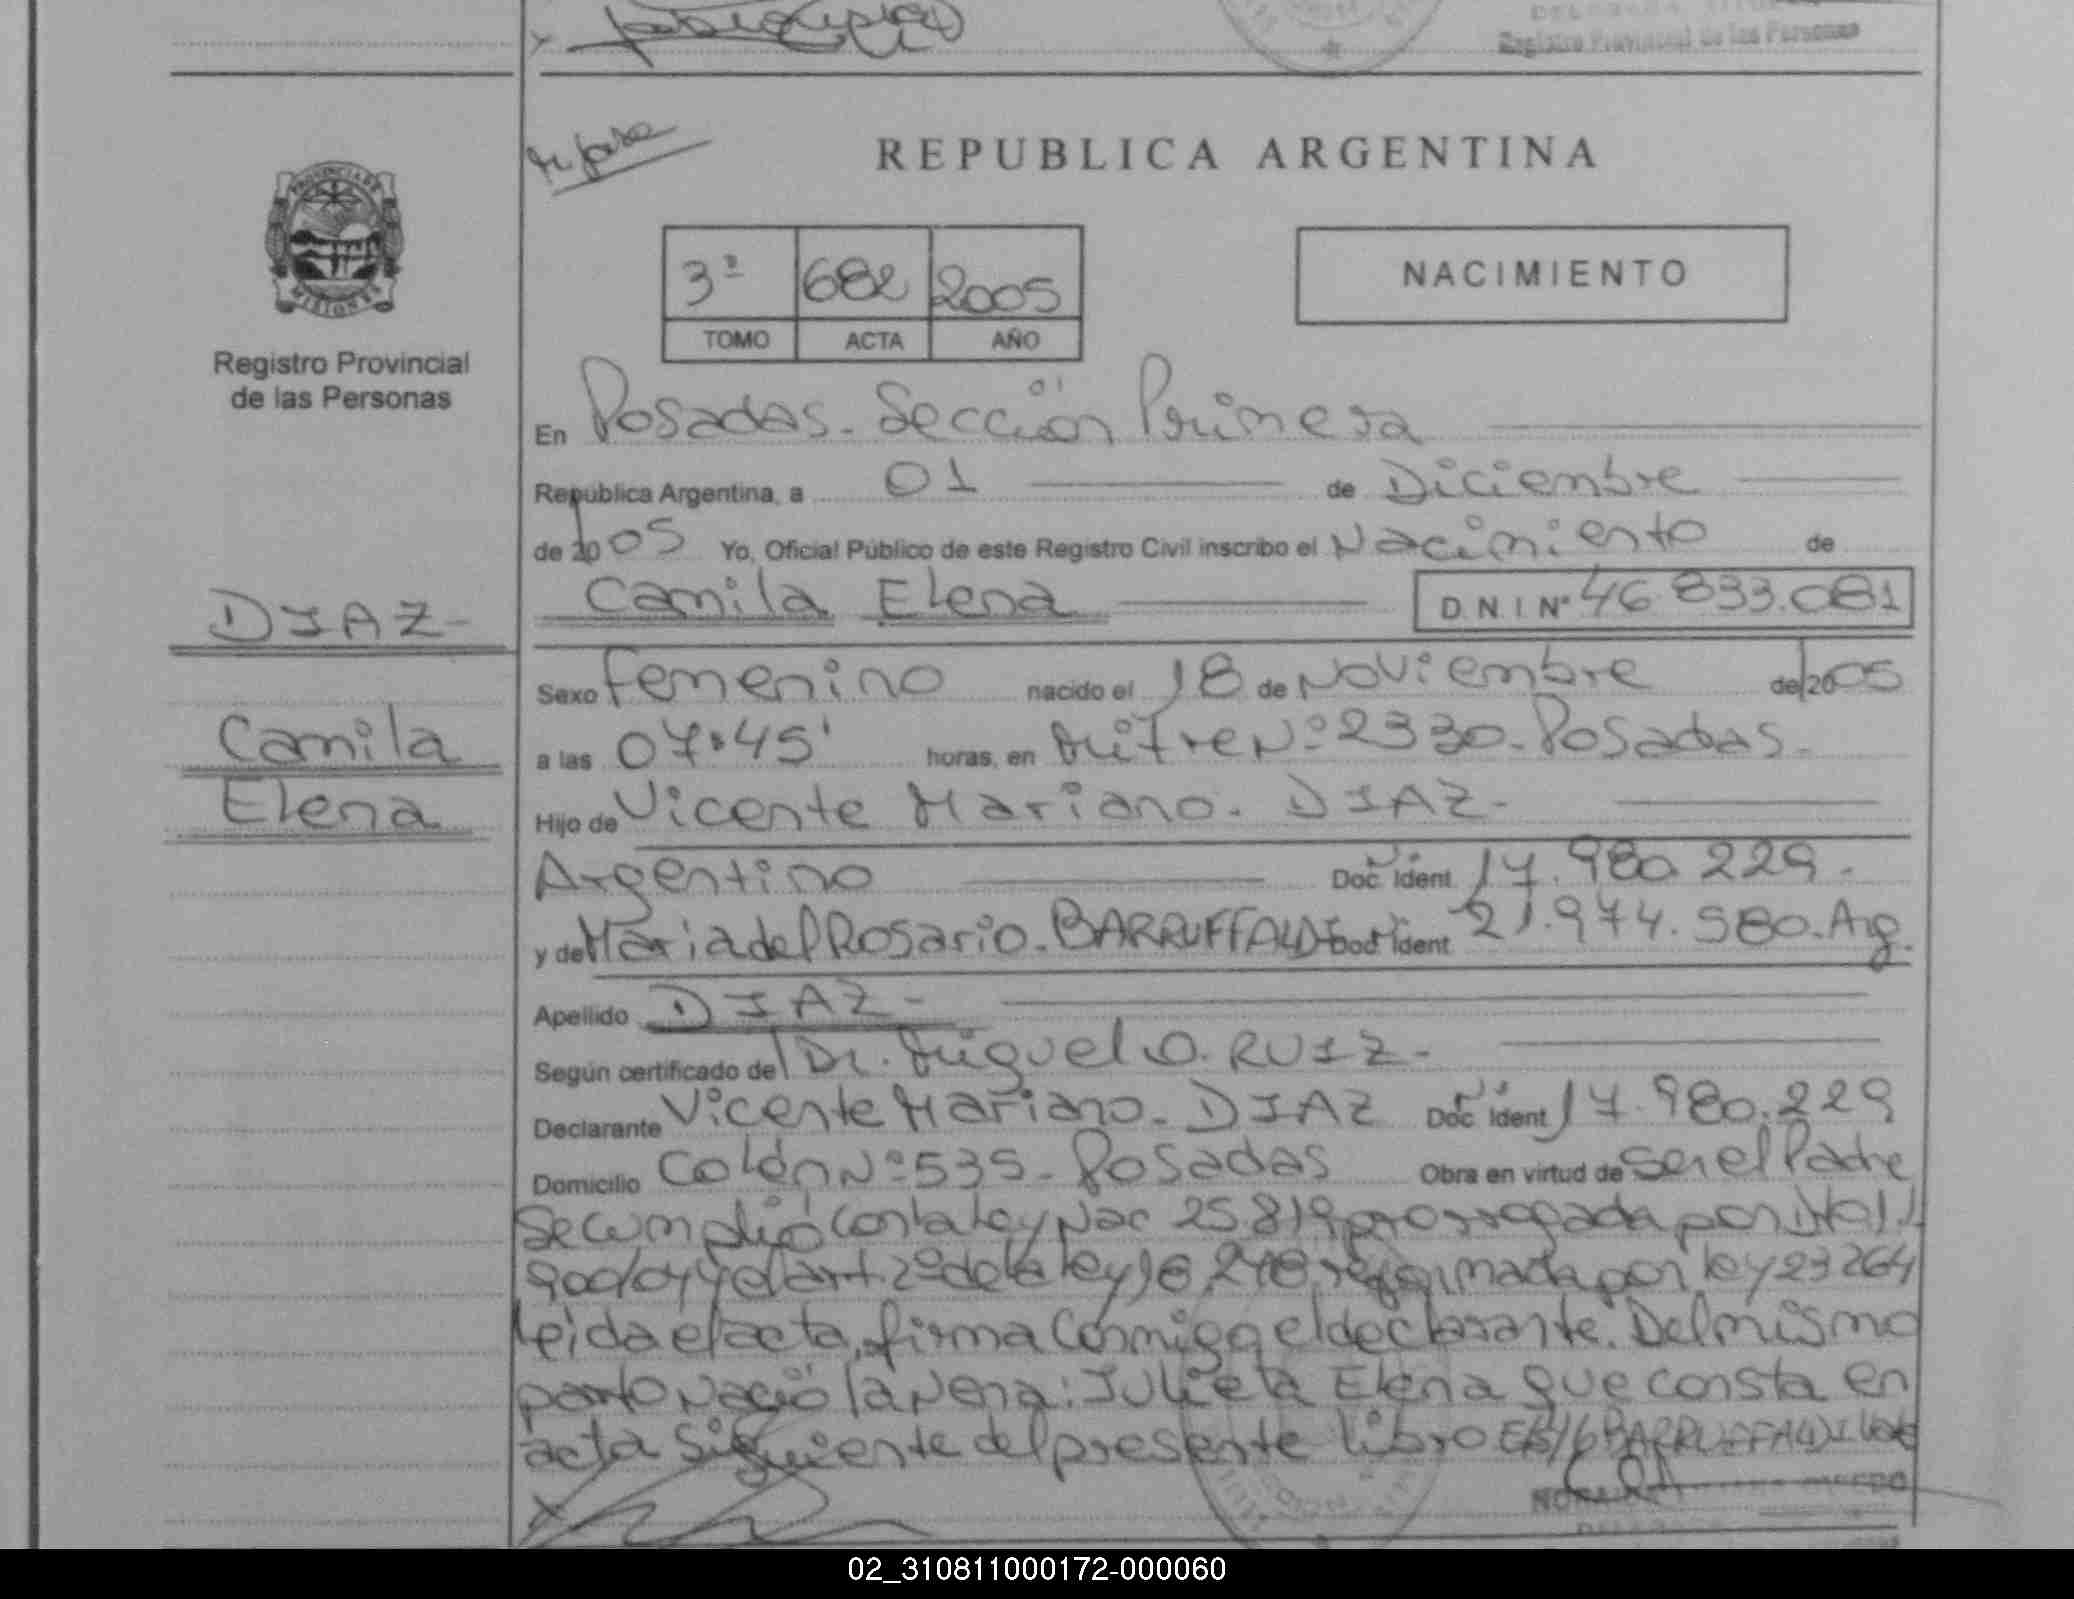 Registro Provincial de las Personas
REPUBLICA ARGENTINA
PROVINCIA DE
MISIONES
3ª 682 2005
TOMO ACTA AÑO
NACIMIENTO
Registro Provincial
de las Personas
En Posadas. Sección Primera
República Argentina, a 01 de Diciembre
de 2005 Yo, Oficial Público de este Registro Civil inscribo el Nacimiento de
Camila Elena D.N.I Nº 46 833.081
DIAZ-
Camila
Elena
Sexo Femenino nacido el 18 de Noviembre de 2005
a las 07.45' horas, en Mitre Nº 2330. Posadas.
Hijo de Vicente Mariano. DIAZ-
Argentino Doc. Ident. 17.980.229.
y de Maria del Rosario. BARRUFFALDI Doc. Ident. 21.974.580. Arg.
Apellido DIAZ-
Según certificado del Dr. Miguel O. RUIZ-
Declarante Vicente Mariano. DIAZ Doc. Ident. 17.980.229
Domicilio Colón Nº 535. Posadas Obra en virtud de ser el Padre
Se cumplió con la Ley Nac 25.819 prorrogada por
y el art. 2º de la ley 18.248 reformada por ley 23264
Leida el acta, firma conmigo el declarante. Del mismo
parto nació la nena: Julieta Elena que consta en
acta siguiente del presente libro BARRUFFALDI Vale
02_310811000172-000060